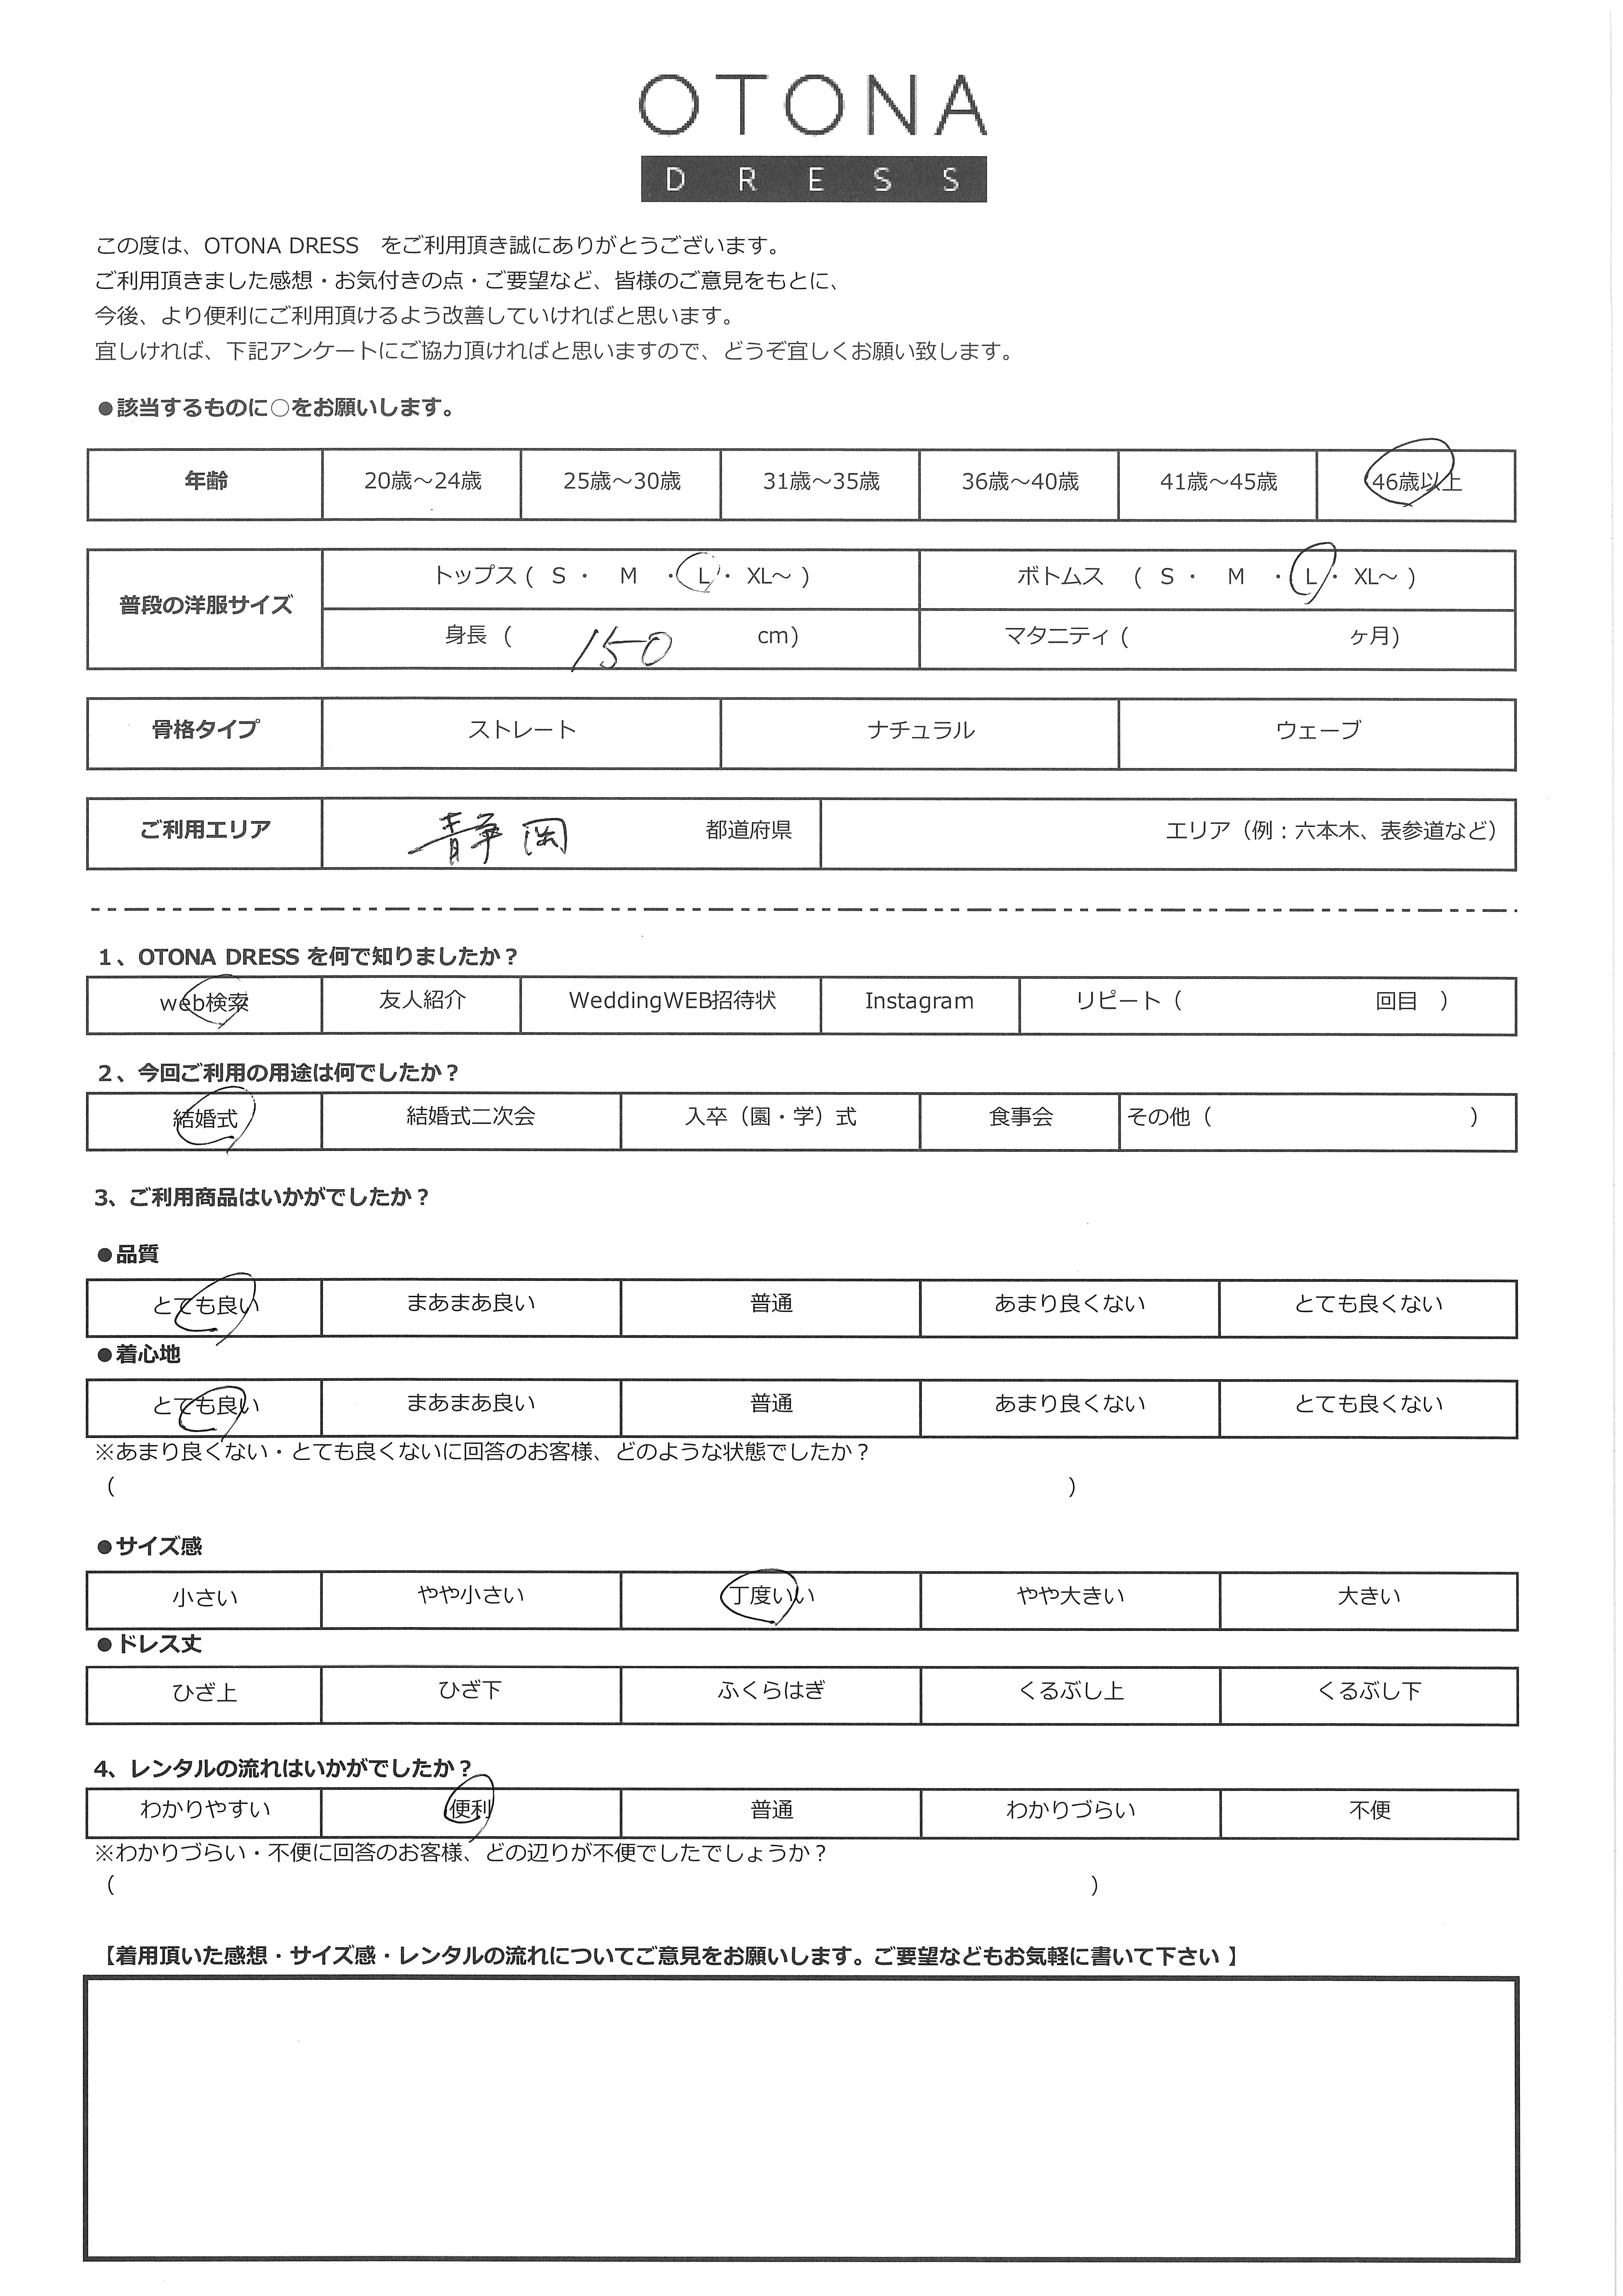 OTONA
DRESS
この度は、OTONA DRESS　をご利用頂き誠にありがとうございます。
ご利用頂きました感想・お気付きの点・ご要望など、皆様のご意見をもとに、
今後、より便利にご利用頂けるよう改善していければと思います。
宜しければ、下記アンケートにご協力頂ければと思いますので、どうぞ宜しくお願い致します。
●該当するものに○をお願いします。
年齢 20歳～24歳 25歳～30歳 31歳～35歳 36歳～40歳 41歳～45歳 46歳以上
普段の洋服サイズ トップス ( S ・ M ・ L ・ XL～ ) ボトムス ( S ・ M ・ L ・ XL～ )
身長 ( 150 cm) マタニティ ( ヶ月)
骨格タイプ ストレート ナチュラル ウェーブ
ご利用エリア 静岡 都道府県 エリア（例：六本木、表参道など）
1、OTONA DRESS を何で知りましたか？
web検索 友人紹介 WeddingWEB招待状 Instagram リピート（ 回目 ）
2、今回ご利用の用途は何でしたか？
結婚式 結婚式二次会 入卒（園・学）式 食事会 その他（ ）
3、ご利用商品はいかがでしたか？
●品質
とても良い まあまあ良い 普通 あまり良くない とても良くない
●着心地
とても良い まあまあ良い 普通 あまり良くない とても良くない
※あまり良くない・とても良くないに回答のお客様、どのような状態でしたか？
（ ）
●サイズ感
小さい やや小さい 丁度いい やや大きい 大きい
●ドレス丈
ひざ上 ひざ下 ふくらはぎ くるぶし上 くるぶし下
4、レンタルの流れはいかがでしたか？
わかりやすい 便利 普通 わかりづらい 不便
※わかりづらい・不便に回答のお客様、どの辺りが不便でしたでしょうか？
（ ）
【着用頂いた感想・サイズ感・レンタルの流れについてご意見をお願いします。ご要望などもお気軽に書いて下さい 】